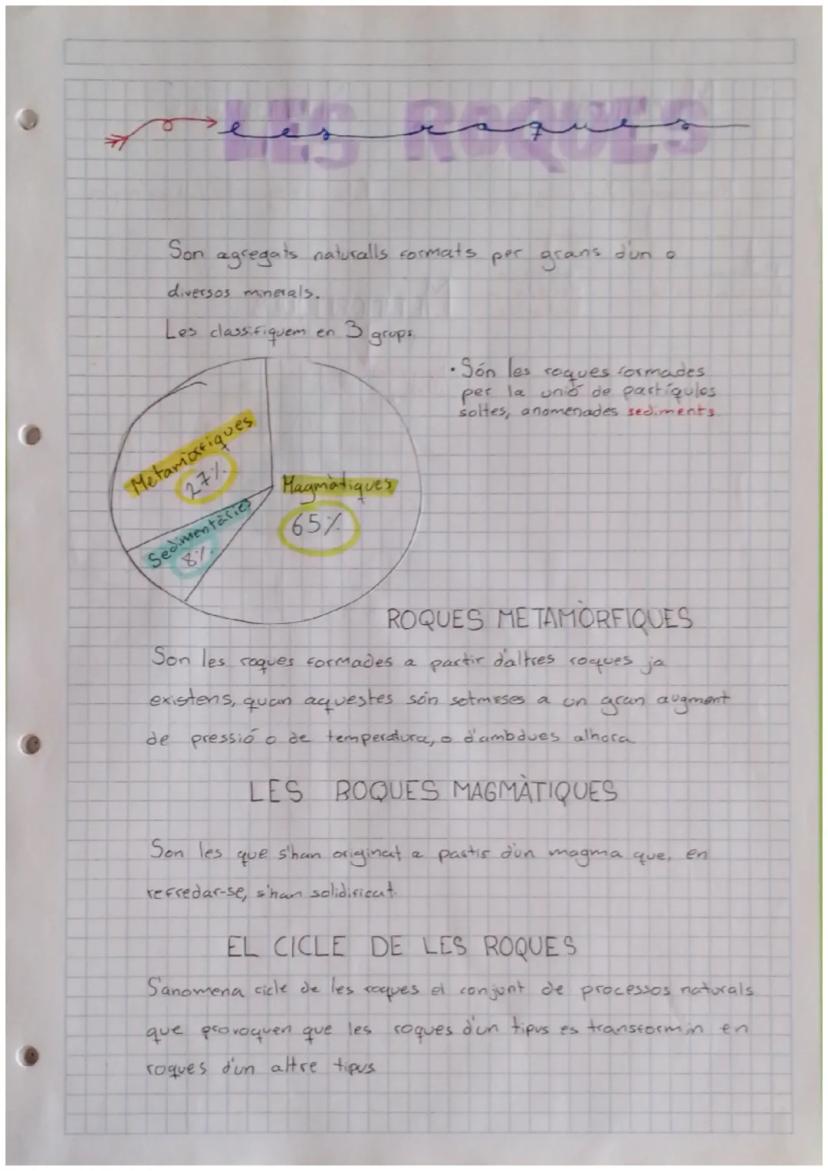 LES ROQUES
les roques
Son agregats naturalls formats per grans d'un o
diversos minerals.
Les classifiquem en 3 grups.
· Són les roques formades
per la unió de partíqules
soltes, anomenades sediments
Metamòrfiques
27%
Magmàtiques
65%
Sedimentàries
8%
ROQUES METAMÒRFIQUES
Son les roques formades a partir d'altres roques ja
existens, quan aquestes són sotmeses a un gran augment
de pressió o de temperatura, o d'ambdues alhora
LES ROQUES MAGMÀTIQUES
Son les que s'han originat a partir d'un magma que, en
refredar-se, s'han solidificat.
EL CICLE DE LES ROQUES
S'anomena cicle de les roques el conjunt de processos naturals
que provoquen que les roques d'un tipus es transformin en
roques d'un altre tipus